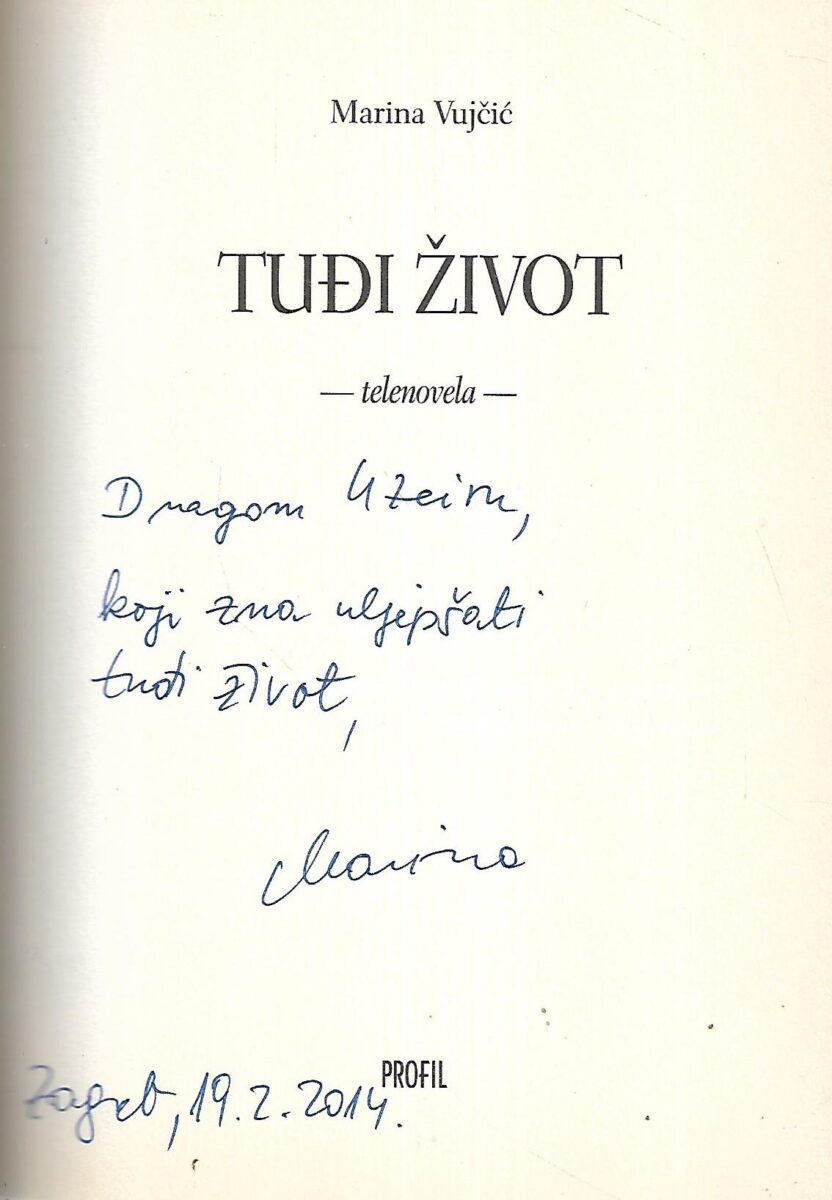 Marina Vujčić
TUĐI ŽIVOT
— telenovela —
Dragom Uzeiru,
koji zna uljepšati
tuđi život,
Marina
PROFIL
Zagreb, 19.2.2014.